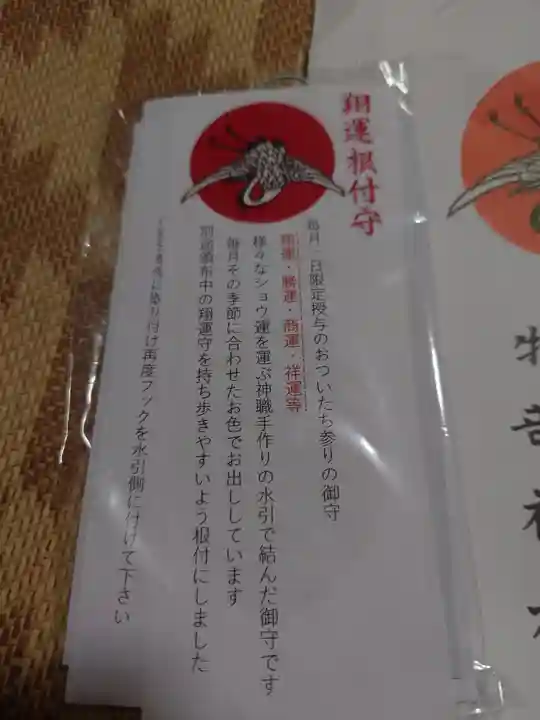 翔運根付守
毎月一日限定授与のおついたち参りの御守
翔運・勝運・商運・祥運等
様々なショウ運を運ぶ神職手作りの水引で結んだ御守です
毎月その季節に合わせたお色でお出ししています
別途頒布中の翔運守を持ち歩きやすいよう根付にしました
り付け再度フックを水引側に付けて下さい